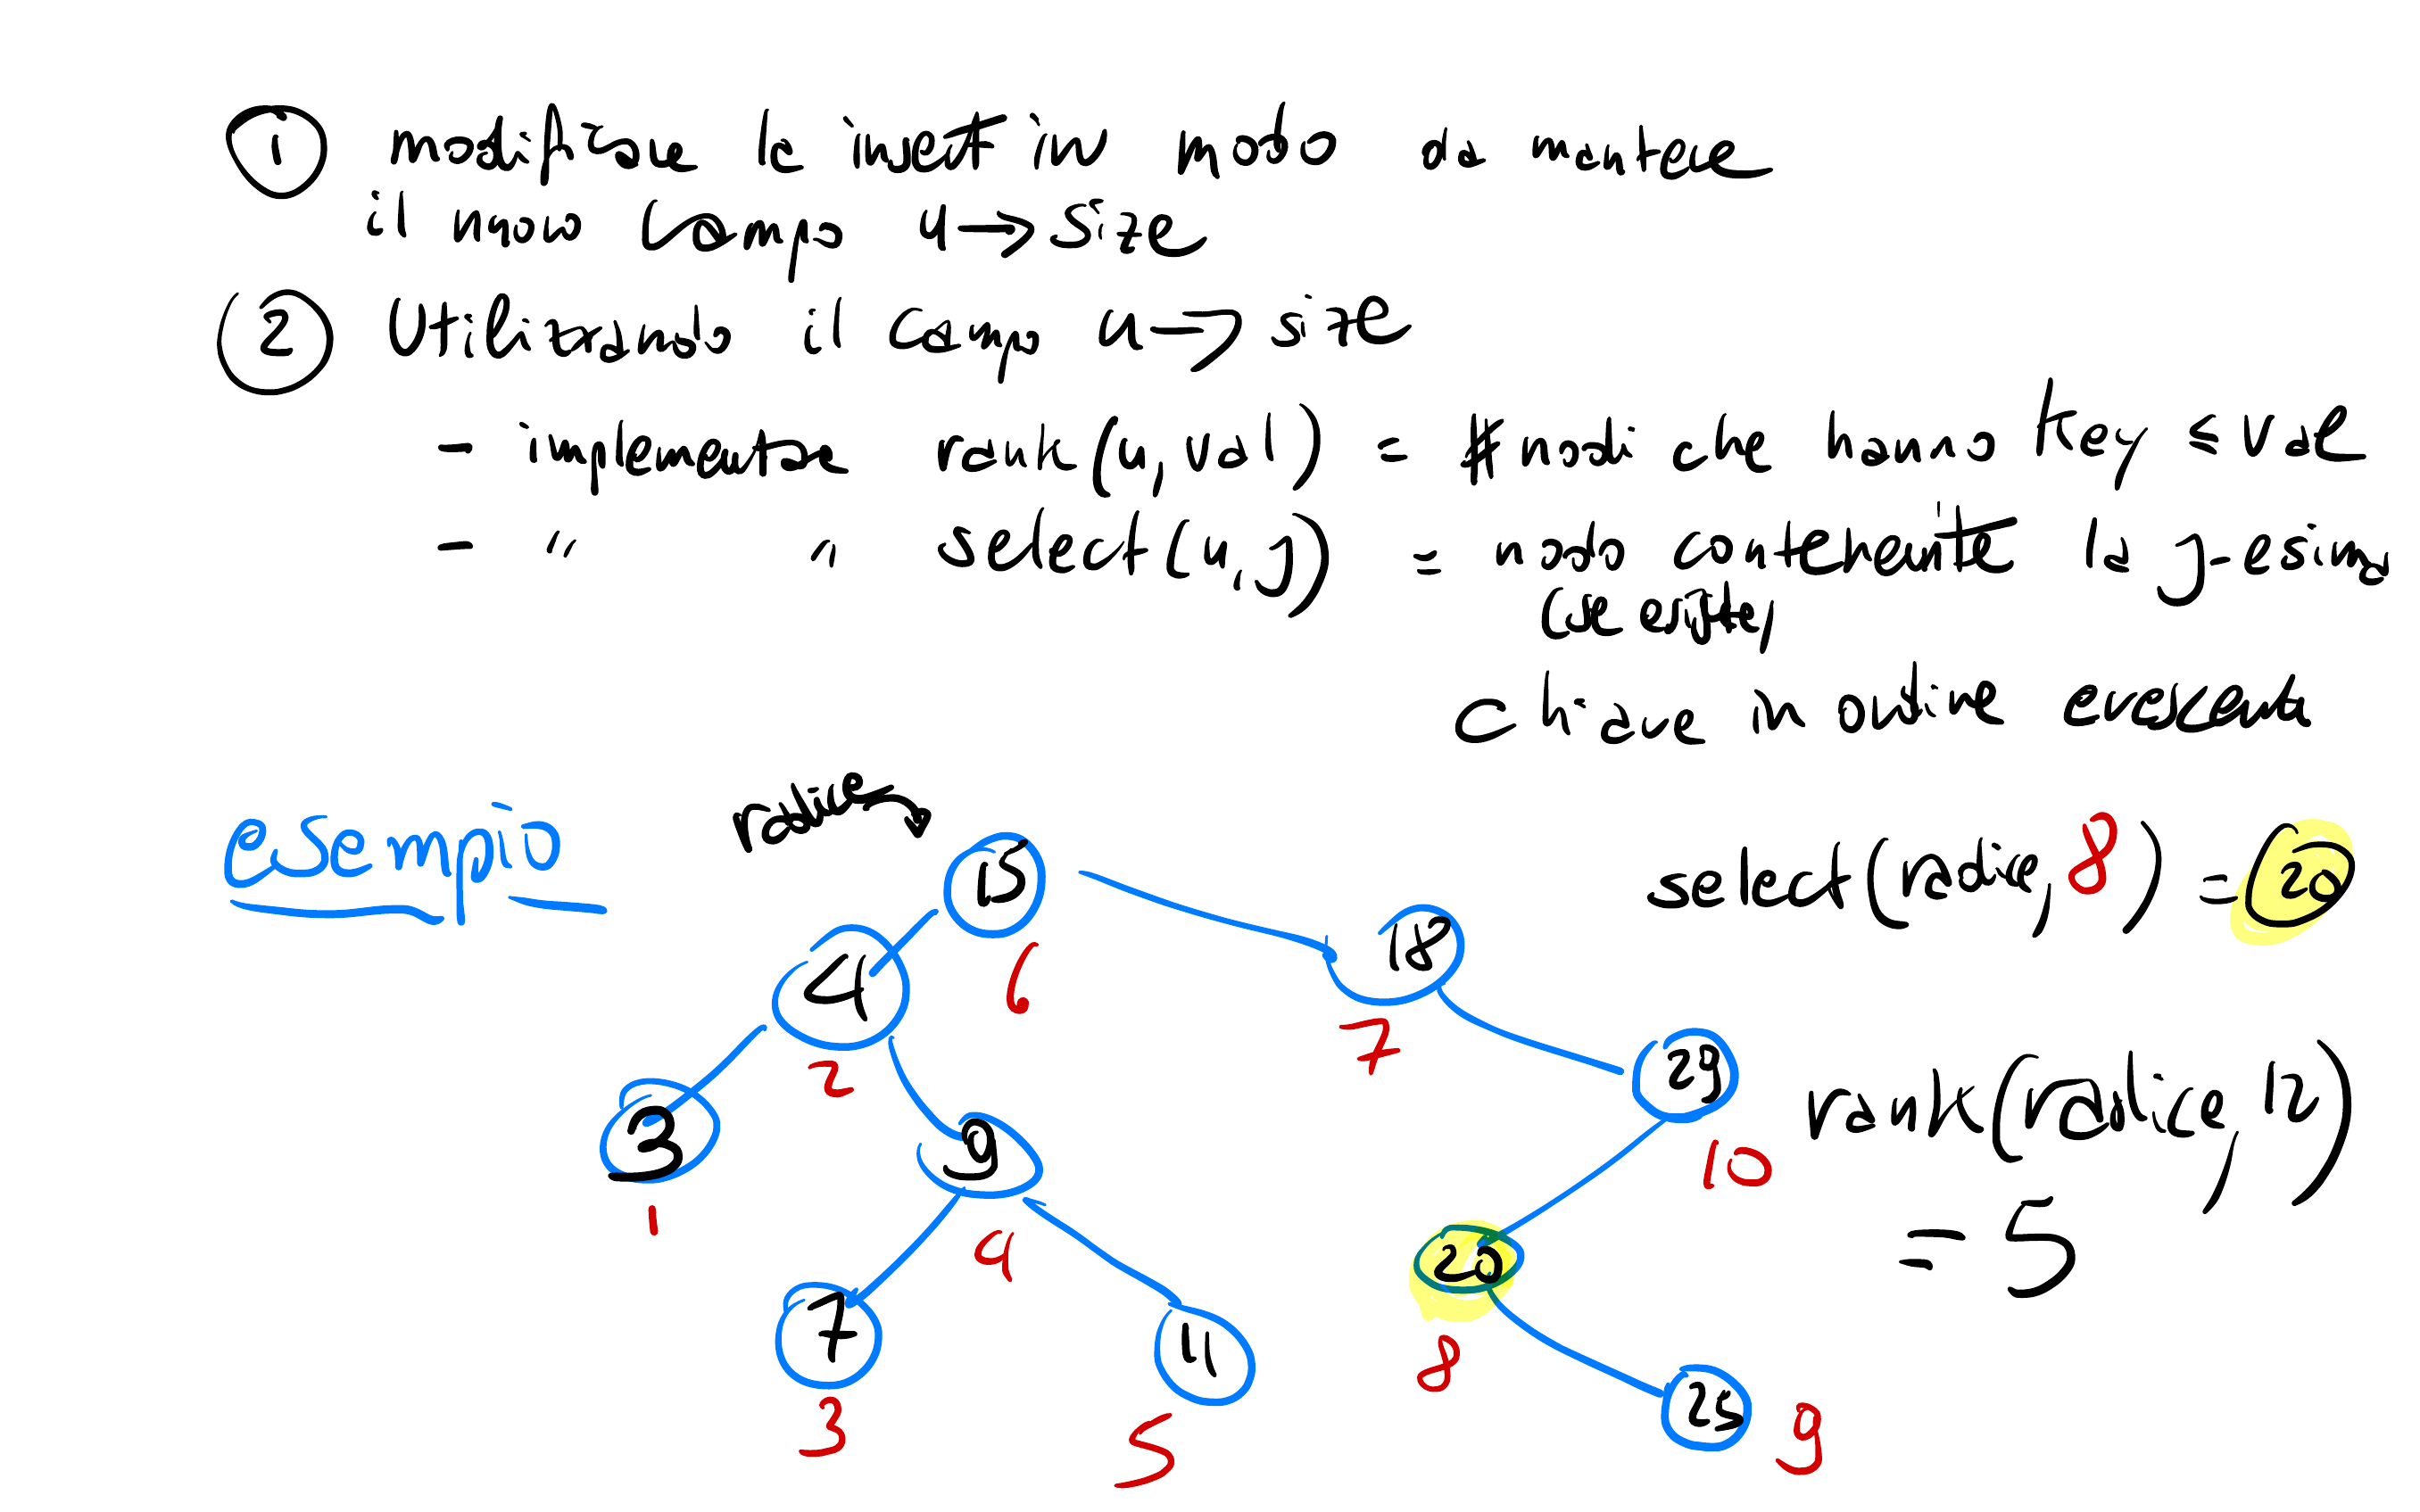 ① modificare la insert in modo da mantenere
il nuovo campo u→size
② Utilizzando il campo u→size
- implementare rank(u, val) = # nodi che hanno key ≤ val
- " " select(u, j) = nodo contenente la j-esima
(se esiste)
chiave in ordine crescente
esempio
radice
select(radice, 8) = 20
15
6
4
2
18
7
3
1
9
4
29
10
rank(radice, 12)
= 5
7
3
11
5
20
8
25
9